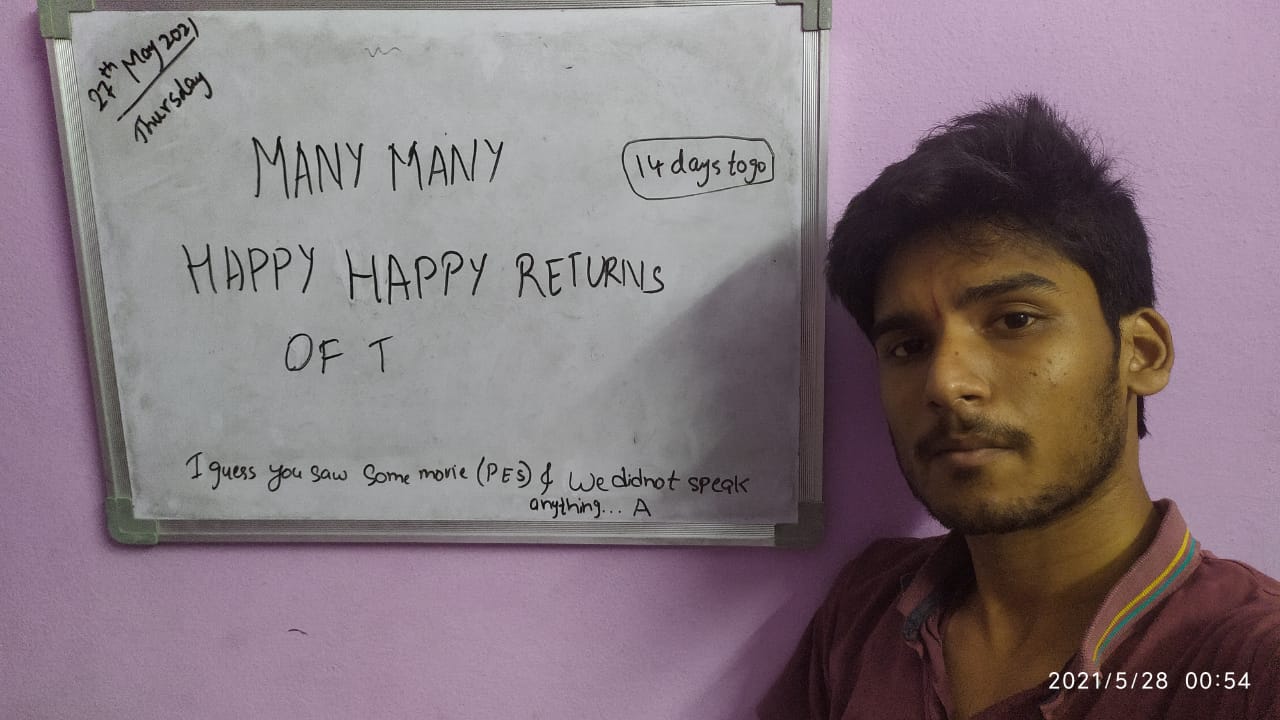 27th May 2021
Thursday
MANY MANY
14 days to go
HAPPY HAPPY RETURNS
OF T
I guess you saw some movie (PES) & We didnot speak
anything... A
2021/5/28 00:54